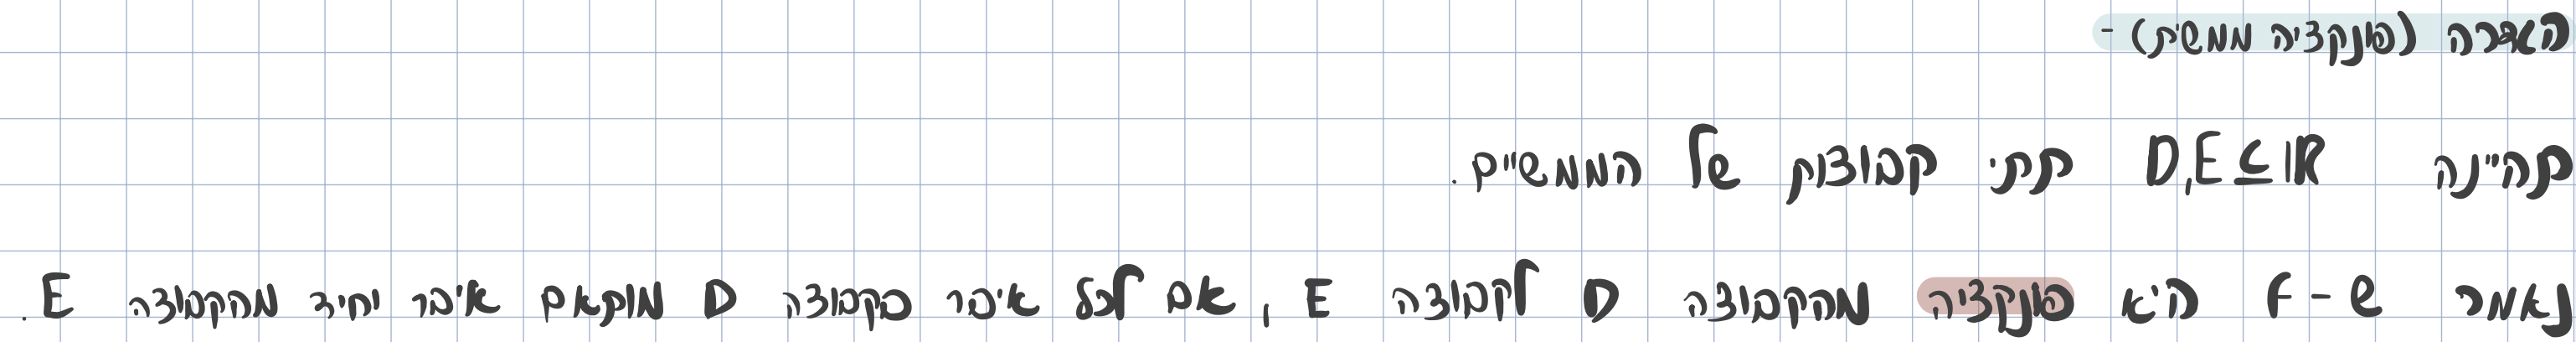 הגדרה (פונקציה ממשית) -
תהיינה D,E⊆ℝ תתי קבוצות של הממשיים.
נאמר ש-f היא פונקציה מהקבוצה D לקבוצה E, אם לכל איבר בקבוצה D מותאם איבר יחיד מהקבוצה E.